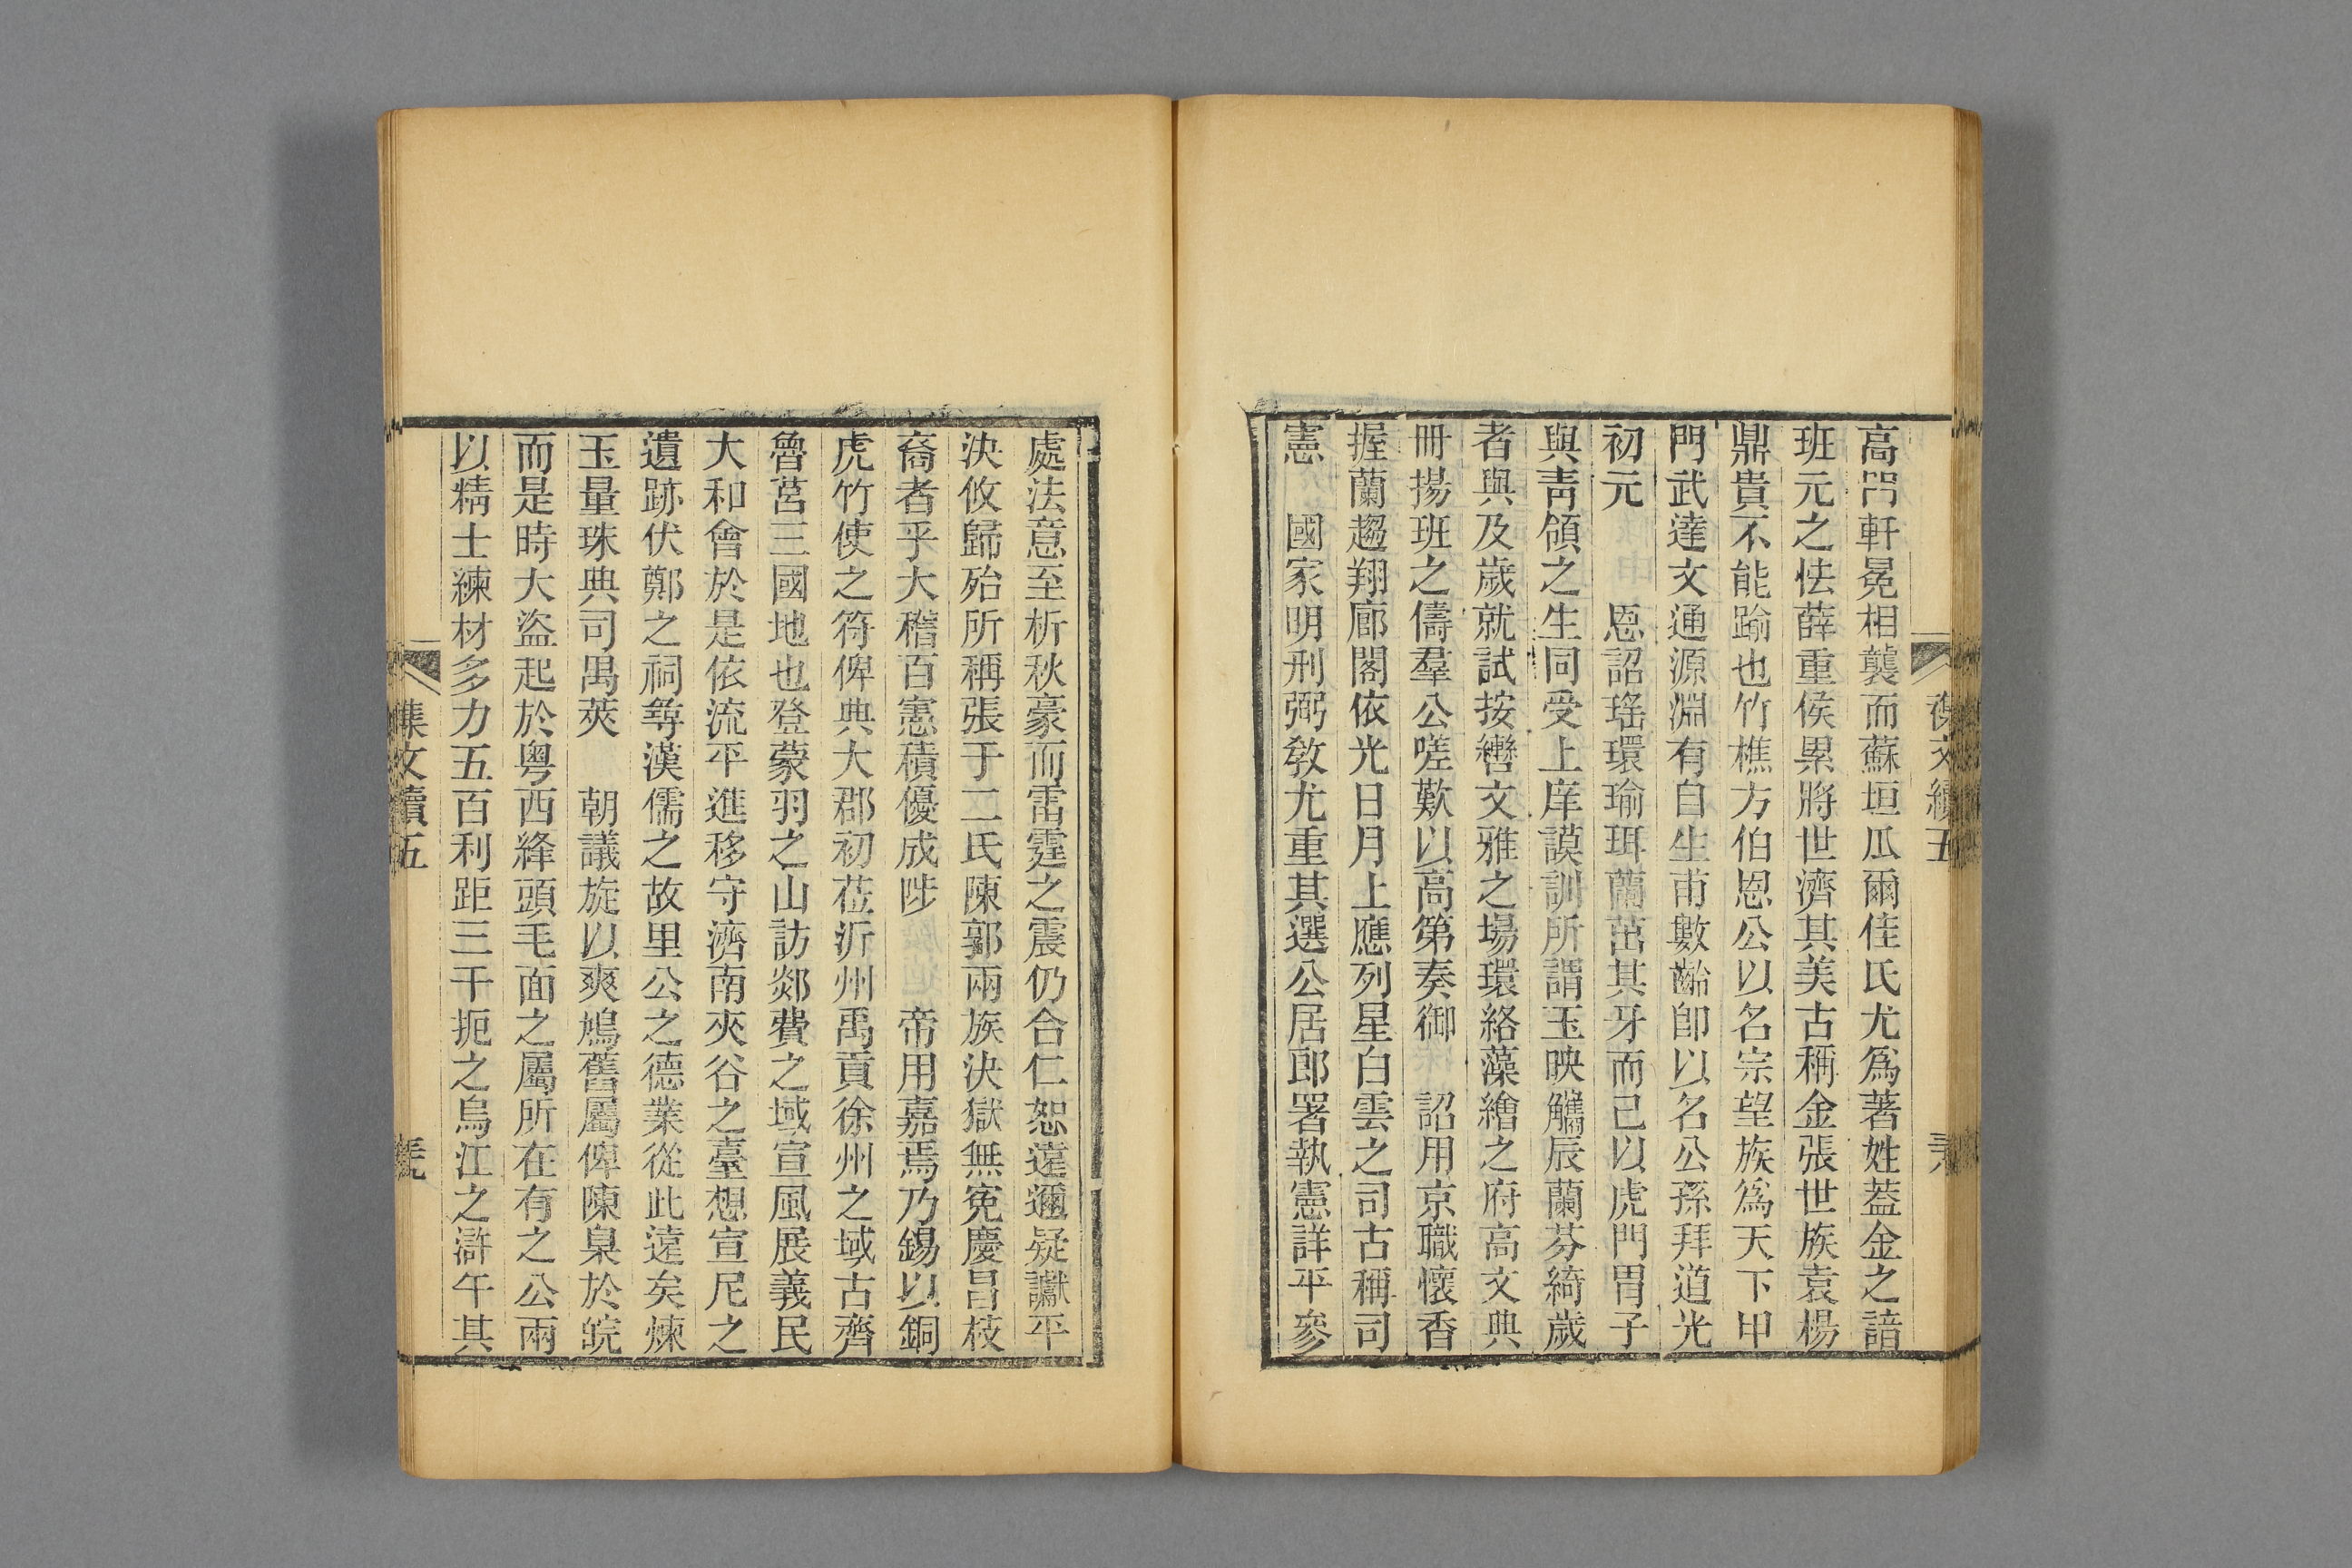 高門軒冕相襲而蘇垣瓜爾佳氏尤爲著姓蓋金之諳
班元之怯薛重侯累將世濟其美古稱金張世族袁楊
鼎貴不能踰也竹樵方伯恩公以名宗望族爲天下甲
門武達文通源淵有自生甫數齡卽以名公孫拜道光
初元　恩詔瑤環瑜珥蘭茁其牙而已以虎門冑子
與靑領之生同受上庠謨訓所謂玉映觿辰蘭芬綺歲
者與及歲就試按轡文雅之場環絡藻繪之府高文典
冊揚班之儔羣公嗟歎以高第奏御　詔用京職懷香
握蘭趨翔廊閣依光日月上應列星白雲之司古稱司
憲　國家明刑弼敎尤重其選公居郎署執憲詳平參
五
處法意至析秋豪而雷霆之震仍合仁恕遠邇疑讞平
決攸歸殆所稱張于二氏陳郭兩族決獄無冤慶昌枝
裔者乎大稽百憲積優成陟　帝用嘉焉乃錫以銅
虎竹使之符俾典大郡初莅沂州禹貢徐州之域古齊
魯莒三國地也登蒙羽之山訪郯費之域宣風展義民
大和會於是依流平進移守濟南夾谷之臺想宣尼之
遺跡伏鄭之祠尋漢儒之故里公之德業從此遠矣煉
玉量珠典司禺莢　朝議旋以爽鳩舊屬俾陳臬於皖
而是時大盜起於粵西絳頭毛面之屬所在有之公兩
以精士練材多力五百利距三千扼之烏江之滸午其
集文續五